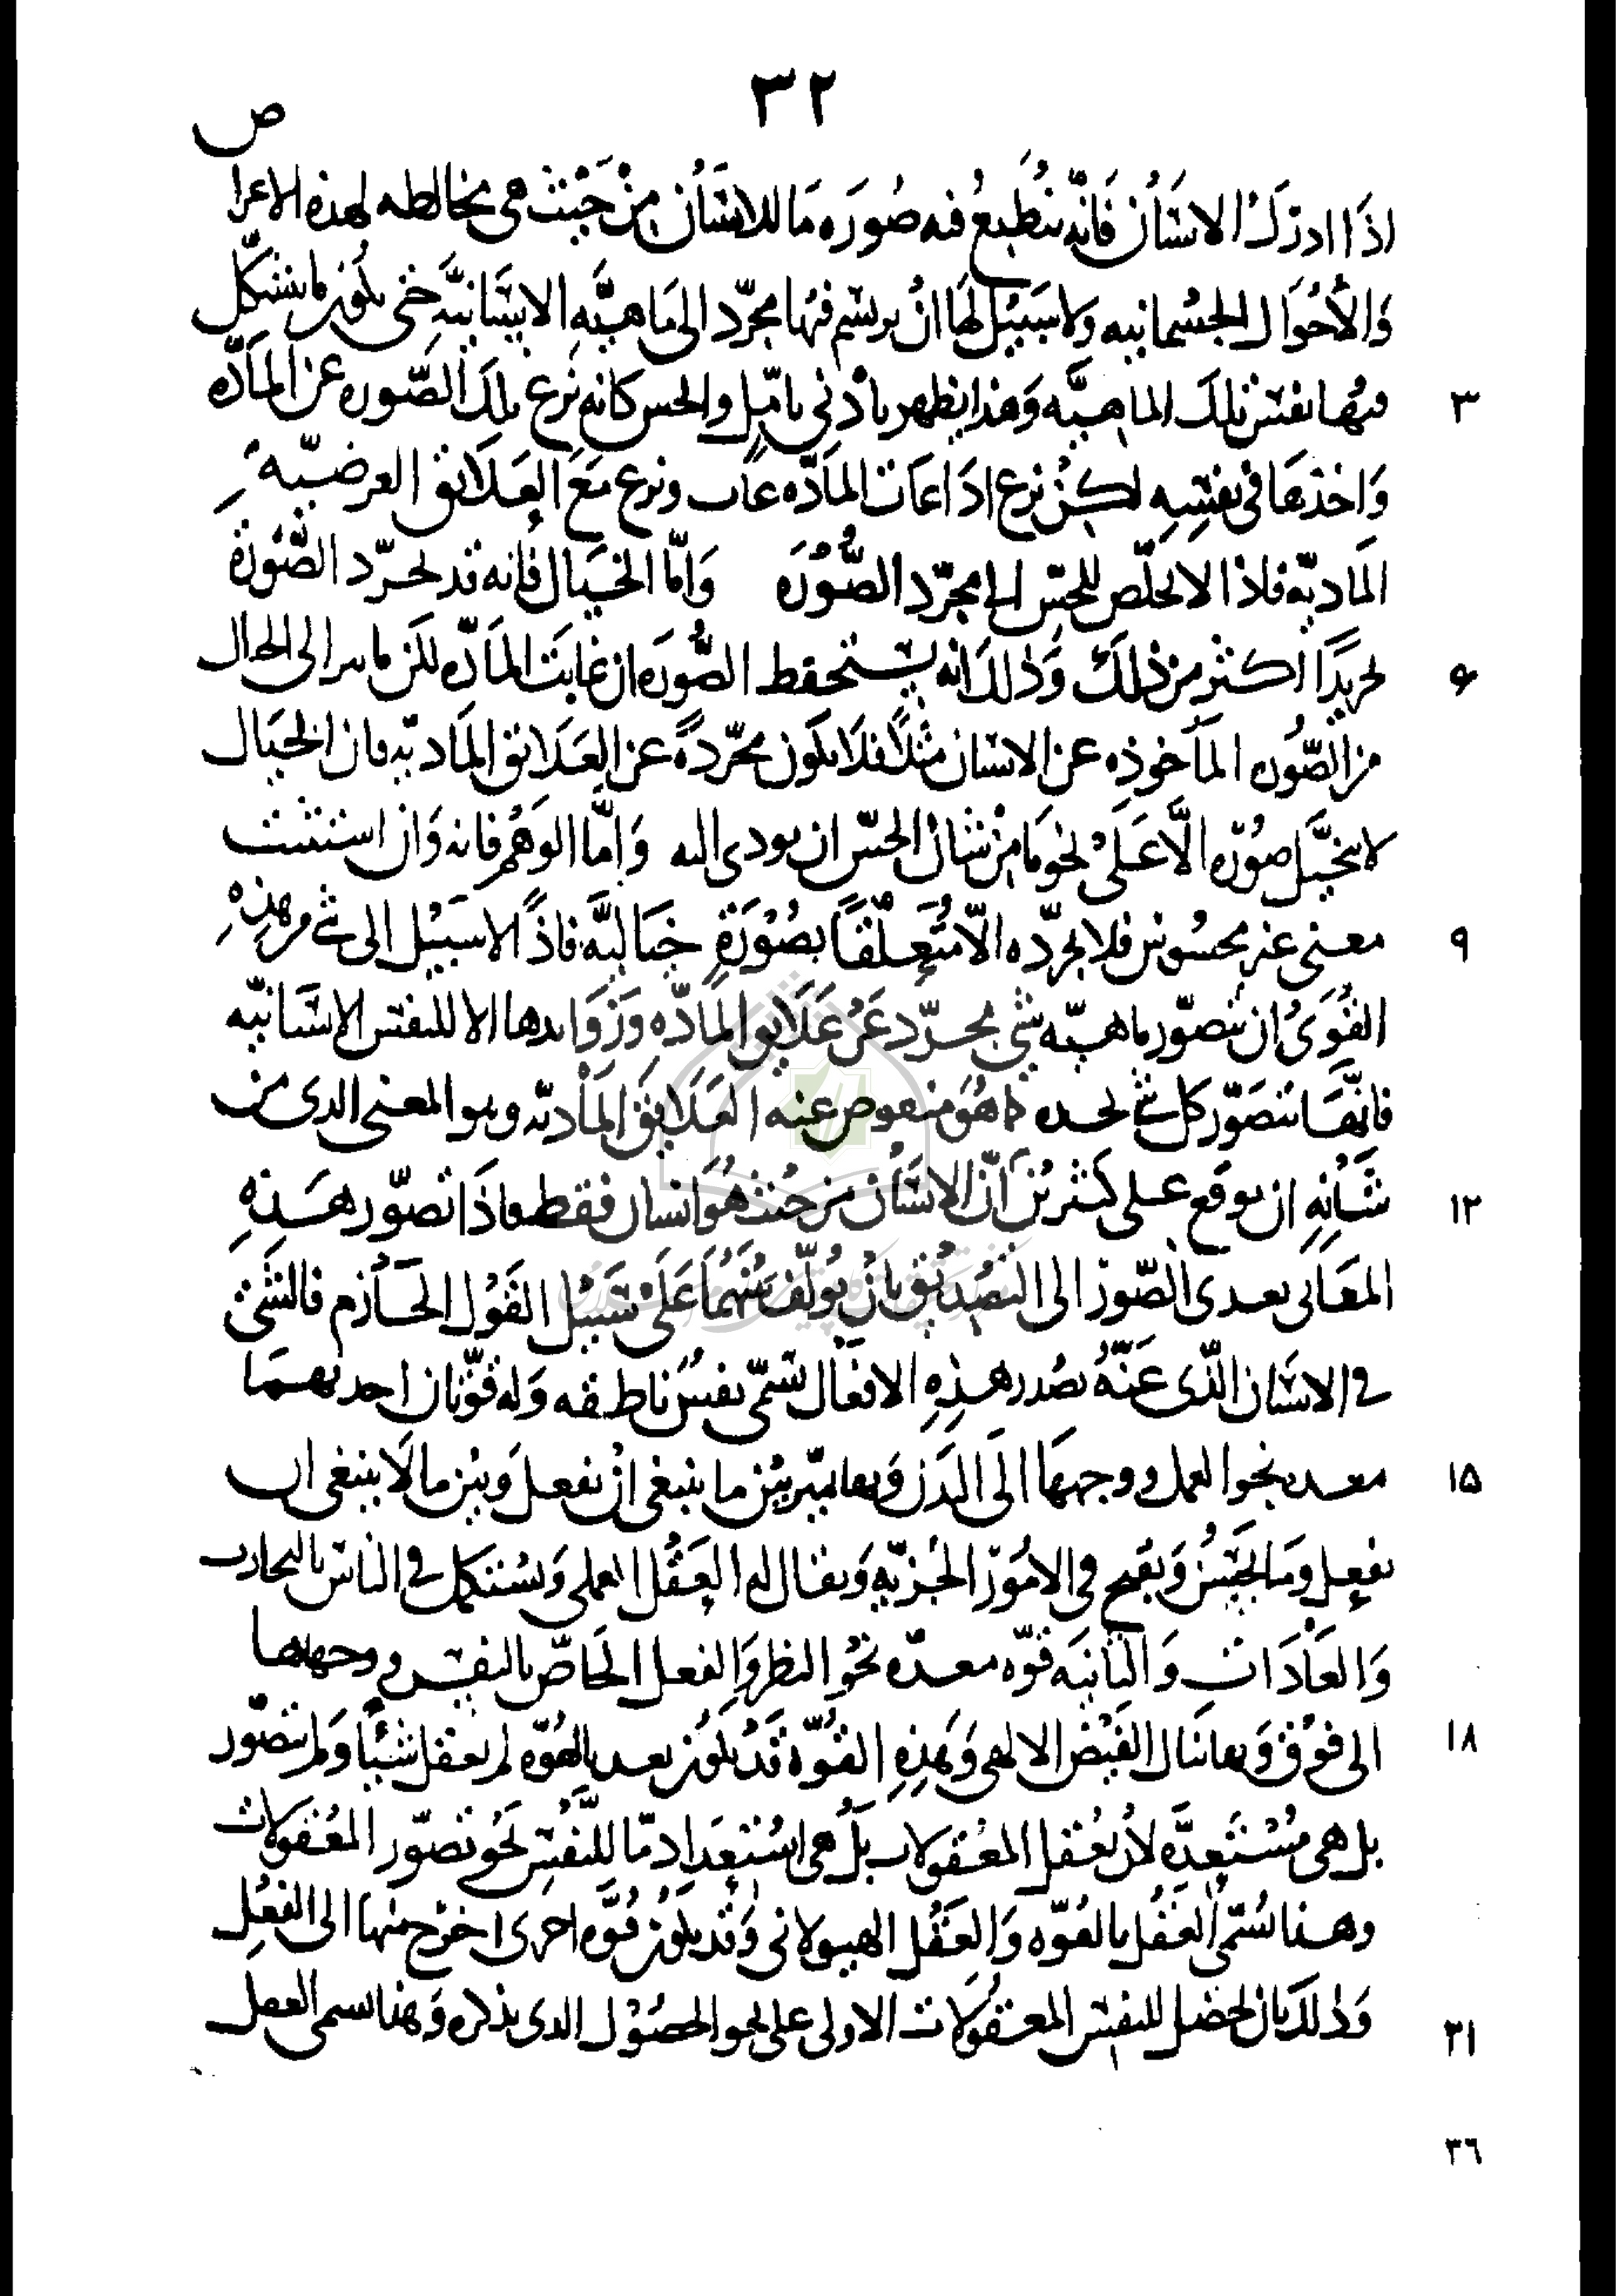 ٣٢
ص
اذا ادرك الانسان فانه ينطبع فيه صورة ما للانسان من حيث هي مخالطه لهذه الاعرا
والأحوال الجسمانيه ولا سبيل لها ان يرتسم فيها مجرد الى ماهيه الانسانية حتى يكون ما يتشكل
٣ فيها نفس تلك الماهيه وهذا يظهر بأدنى تأمل والحس كانه نزع تلك الصوره عن المادّه
واخذها في نفسه لكن نزع اذا غابت المادّه غاب ونزع مع العلائق العرضيّه
المادیّه فاذا لا تخلّص للحس الى مجرّد الصّورَه وامّا الخيال فانه قد يجرّد الصّورة
۶ تجريدًا أكثر من ذلك وذلك انه يستحفظ الصّوره ان غابت المادّه لكن ما يترا الى الخيال
من الصّوره المأخوذه عن الانسان مثلًا فلا يكون مجرّدةً عن العلائق المادیّه فان الخيال
لا يتخيّل صورّه الّا على نحو ما من شان الحسّ ان يودى اليه وامّا الوهم فانه وان استثبت
۹ معنى غير محسوس فلا يجرّده الّا متعلّقًا بصورةٍ خياليّه فاذًا لا سبيل الى شئ من هذه
القوىُ ان يتصوّر ماهيّه شئ مجرّد عن علايق المادّه وزوايدها الا للنفس الانسانيّه
فانّها تتصوّر كل شئ بحده كما هو منفوض عنه العلايق المادّيه وهو المعنى الذى من
١٢ شأنه ان يوقع على كثيرين كالانسان من حيث هو انسان فقط فاذا تصوّر هذه
المعانى تعدى التّصوّر الى التصديق بان يؤلّف بينهما على سبيل القول الجازم فالشئ
في الانسان الّذى عنه تصدر هذه الافعال تسمّى نفس ناطقه وله قوّتان احديهما
١۵ معده نحو العمل ووجهها الى البدن وبها يميّز بين ما ينبغى ان يفعل وبين ما لا ينبغى ان
يفعل وما يحسن ويقبح في الامور الجزئيّه ويقال له العقل العملى ويستكمل في الناس بالتجارب
والعادات والثانيه قوّه معدّه نحو النظر والفعل الخاصّ بالنفس ووجهها
١٨ الى فوق وبها ينال الفيض الالهى وهذه القوّة قد يكون بعد بالقوّه لم يعقل شيئًا ولم تتصوّر
بل هى مستعدّه لان تعقل المعقولات بل هى استعداد مّا للنّفس نحو تصوّر المعقولات
وهذا تسمّى العقل بالقوّه والعقل الهيولانى وقد يكون قوّه اخرى اخرج منها الى الفعل
٢١ وذلك بان يحصل للنفس المعقولات الاولى على نحو الحصول الذى نذكره وهذا يسمى العقل
٣٦